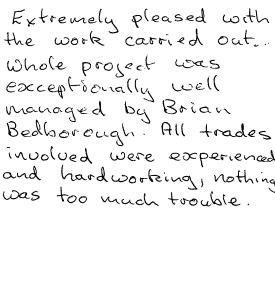 Extremely pleased with
the work carried out...
Whole project was
exceptionally well
managed by Brian
Bedborough. All trades
involved were experienced
and hardworking, nothing
was too much trouble.